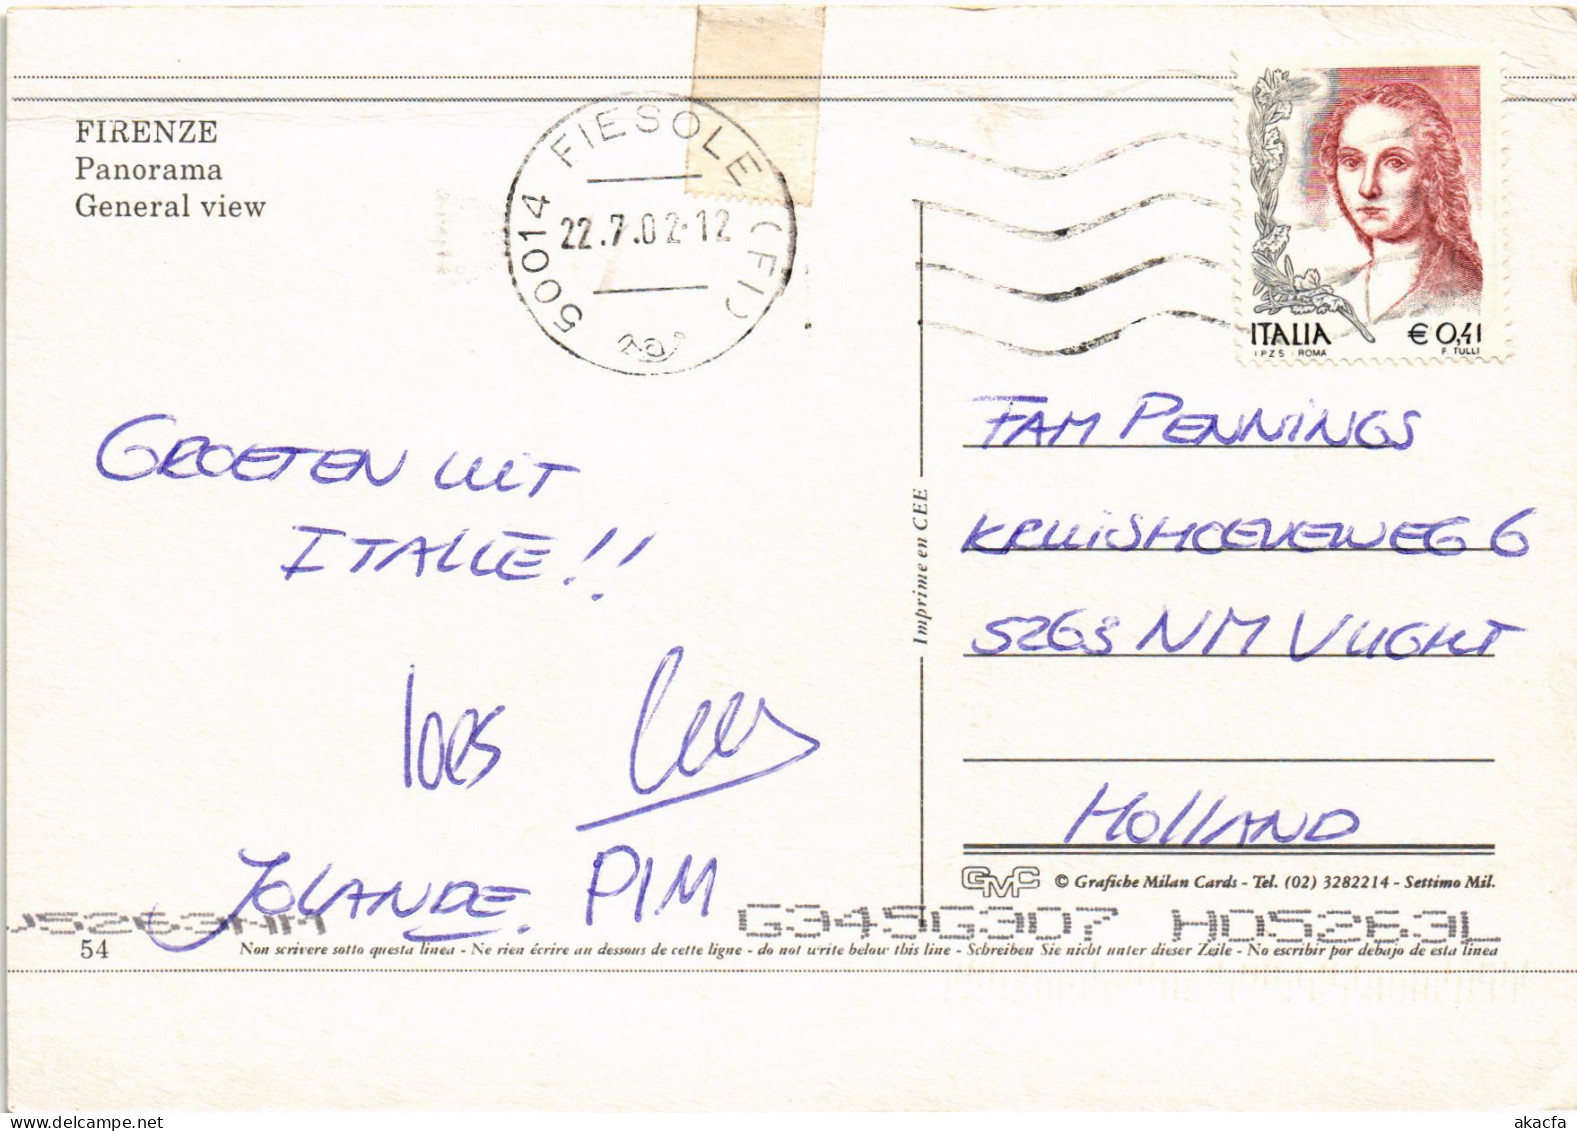 FIRENZE
Panorama
General view
50014 FIESOLE (FI)
22.7.02-12
ITALIA € 0,41
I.P.Z.S. ROMA F. TULLI
GROETEN UIT
ITALIE!!
loes Cees
JOLANDE. PIM
Imprime en CEE
FAM PENNINGS
KRUISHOEVEWEG 6
5263 NM VUGHT
HOLLAND
GMC © Grafiche Milan Cards - Tel. (02) 3282214 - Settimo Mil.
G34SG307 HO5263L
54
Non scrivere sotto questa linea - Ne rien écrire au dessous de cette ligne - do not write below this line - Schreiben Sie nicht unter dieser Zeile - No escribir por debajo de esta linea
akacfa